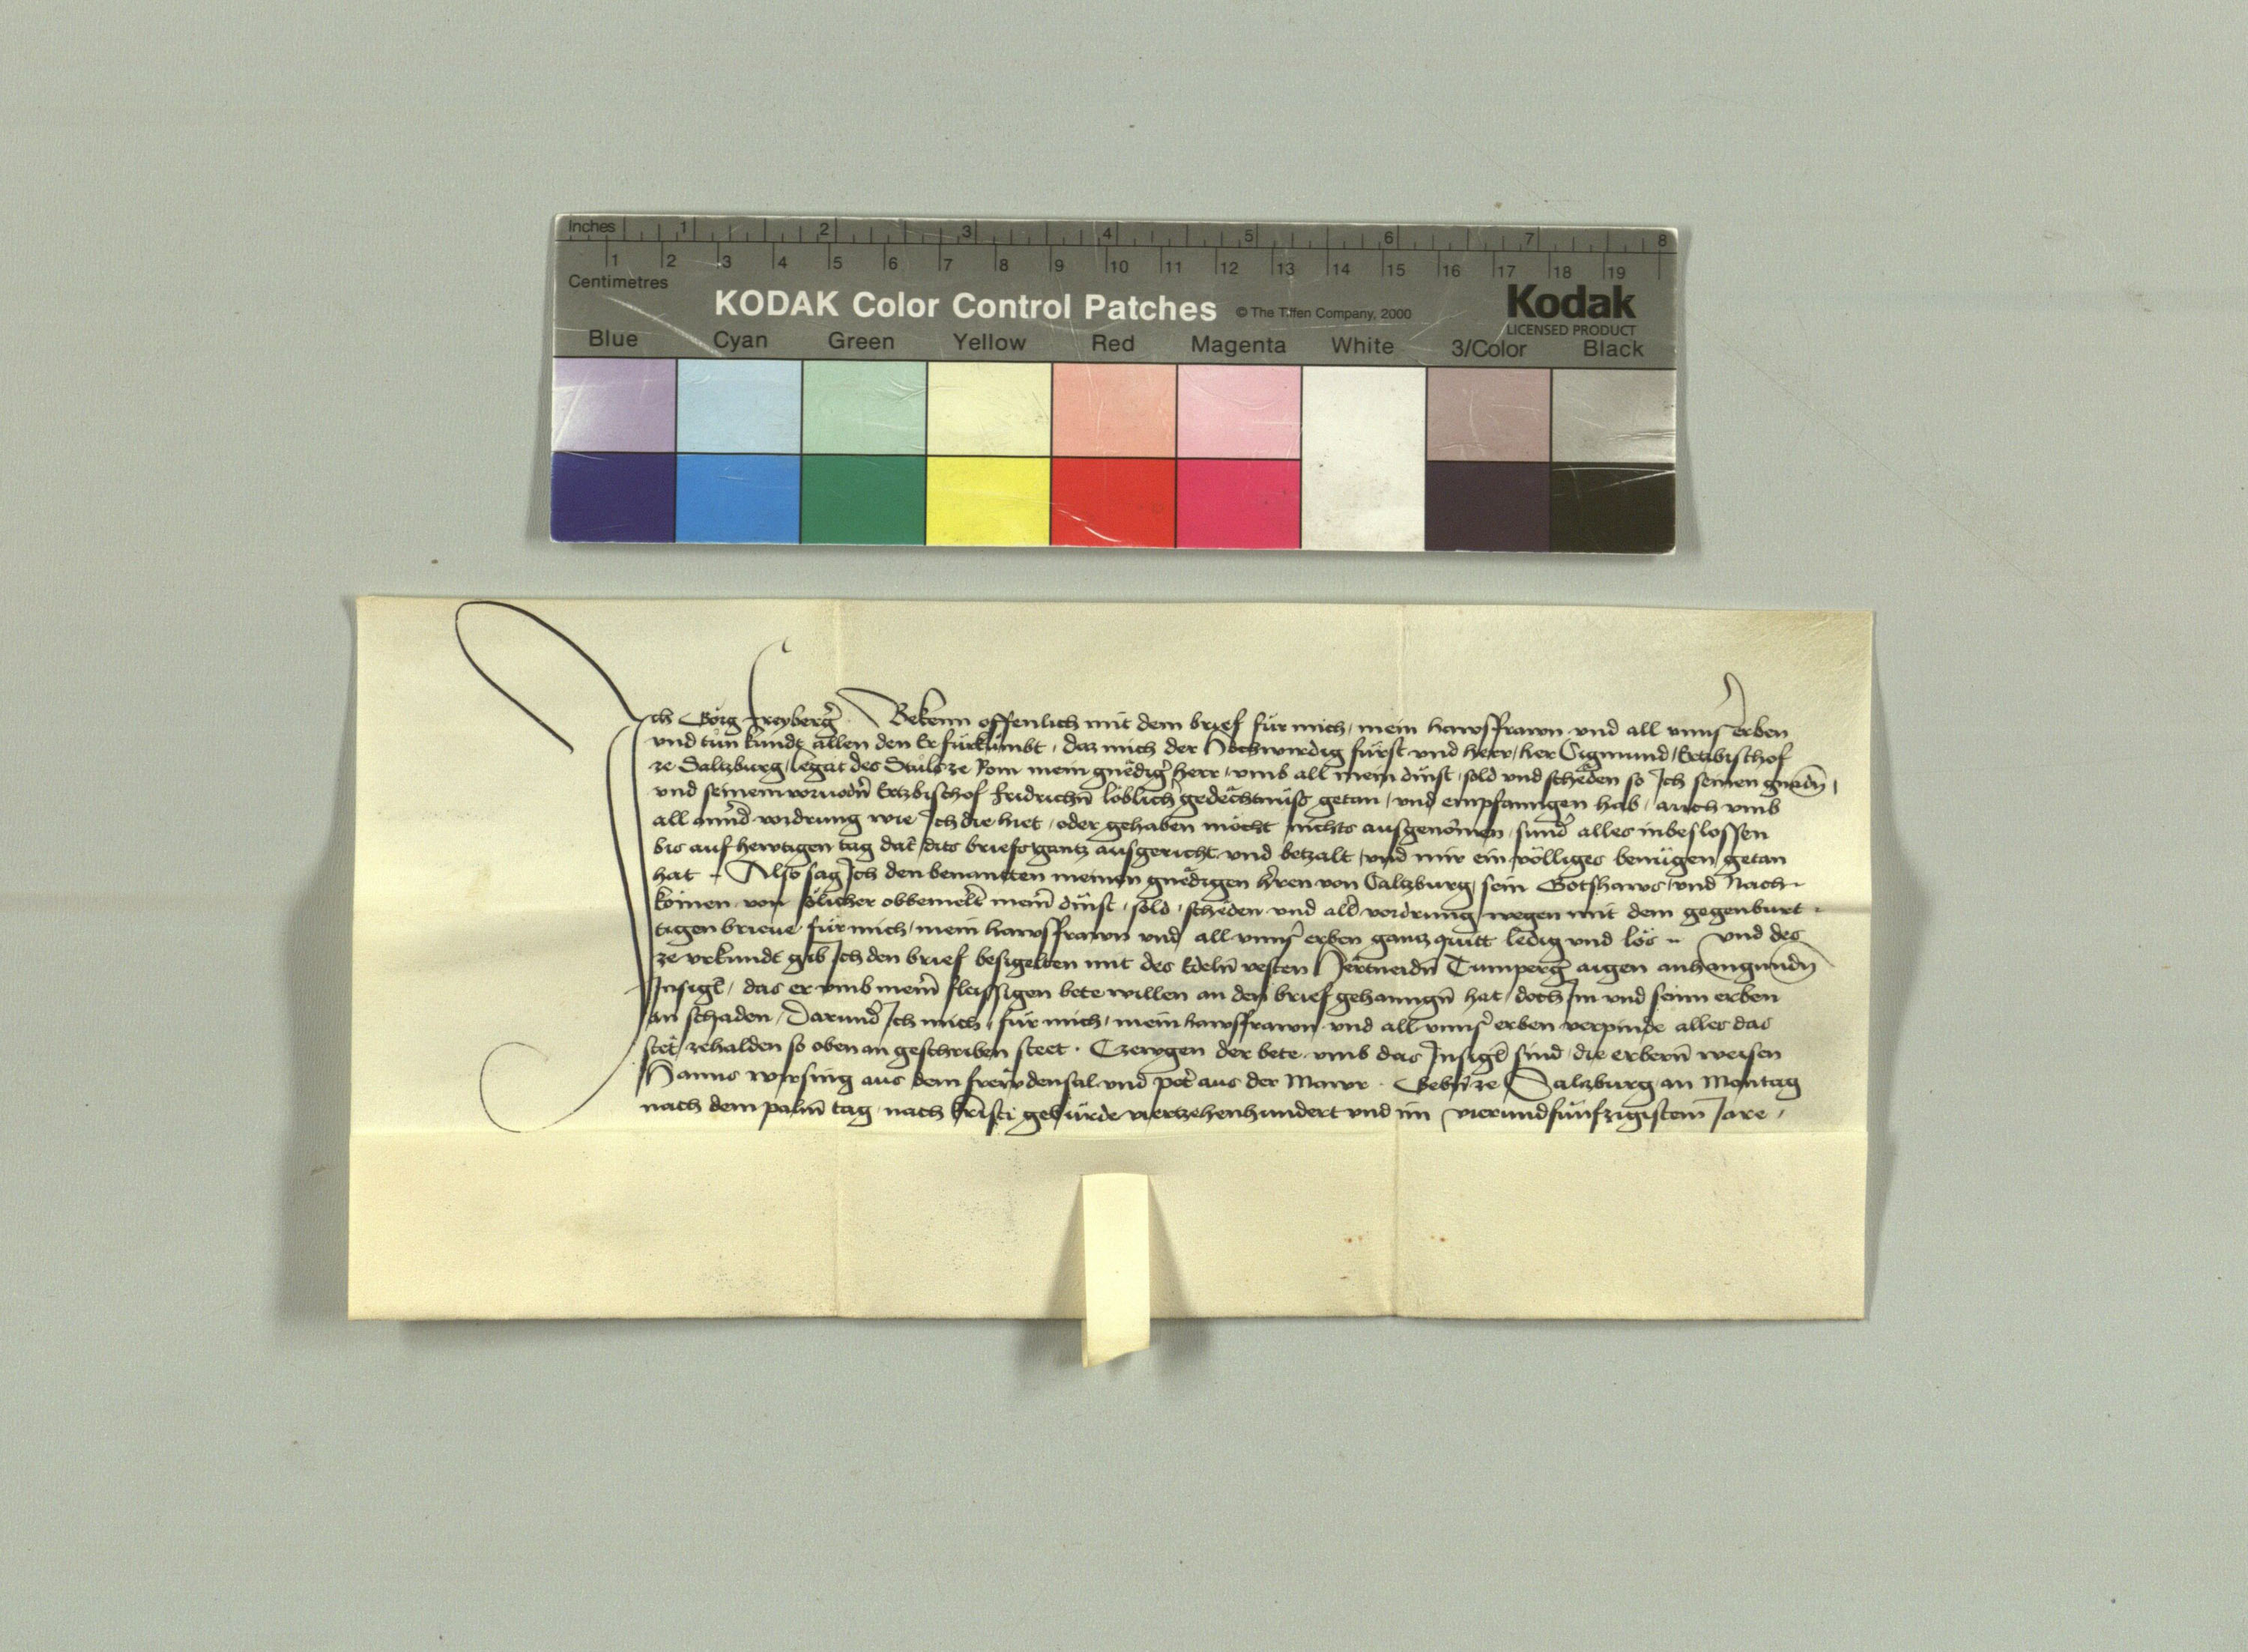 Inches 1 2 3 4 5 6 7 8
1 2 3 4 5 6 7 8 9 10 11 12 13 14 15 16 17 18 19
Centimetres
KODAK Color Control Patches © The Tiffen Company, 2000 Kodak
LICENSED PRODUCT
Blue Cyan Green Yellow Red Magenta White 3/Color Black
Ich Görg Freyberg̃ Bekenn offenlich mit dem brief für mich, mein hawsfrawn und all unns̃ erben
und tůn kundt allen den Er fürkumbt, daz mich der Hochwirdig fürst und herr, her Sigmund, Ertzbischof
ze Saltzburg, legat des Stůls ze Rom mein gnëdig̃ herr, umb all mein dinst, sold und schëden so Ich seinen gnadñ,
und seinem vorvodñ Ertzbischof Fridrichñ löblich̃ gedëchtnüss getan, und empfanngen hab, auch umb
all annd̃ vordrung wie Ich die hiet, oder gehaben möcht nichts ausgenom̃en, sund̃ alles inbeslossen
bis auf hewtigen tag dat̃ dits briefs gantz ausgericht und betzalt, und mir ein völligs benügen getan
hat. Also sag Ich den benanten meinen gnëdigen hr̃ren von Saltzburg, sein Gotshaws, und Nach-
komen von sölicher obbemelt̃ meiñ dinst, sold, schëden und all̃ vordrung wegen mit dem gegenburt-
tigen brieve für mich, mein hawsfrawn und all unns̃ erben gantz quitt ledig und lös. Und des
ze urkundt gib Ich den brief besigelten mit des Edelñ vesten Hertneidñ Tumperg̃ aigen anhangundñ
Insigl̃, das er umb meiñ fleissigen bete willen an den brief gehanngñ hat, doch Im und seinn erben
an schaden, Darund̃ Ich mich, für mich, mein hawsfrawn und all unns̃ erben verpinde alles das
stët zehalden so oben an geschriben steet. Czewgen der bete umb das Insigl̃ sind, die erberñ weisen
Hanns wirsing aus dem frewdensal und pet̃ aus der Mawr. Gebñ ze Salzburg an Montag
nach dem palm̃ tag, nach kristi gebürde viertzehenhundert und im vierundfünfzigistem Jare,